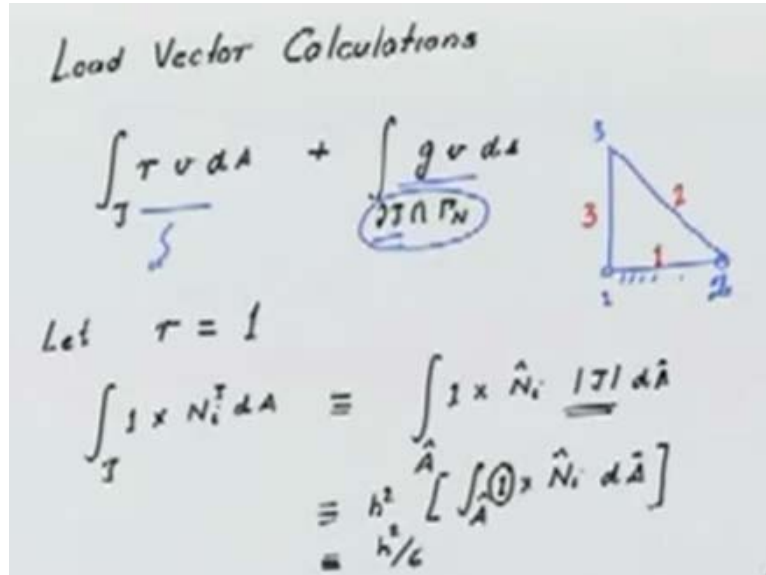 Load Vector Calculations
∫_I r v dA + ∫_{∂I ∩ Γ_N} g v ds
3
3 2
1
1 2
Let r = 1
∫_I 1 × N_i^I dA ≡ ∫_Â 1 × N̂_i |J| dÂ
≡ h² [∫_Â 1 × N̂_i dÂ]
= h²/6